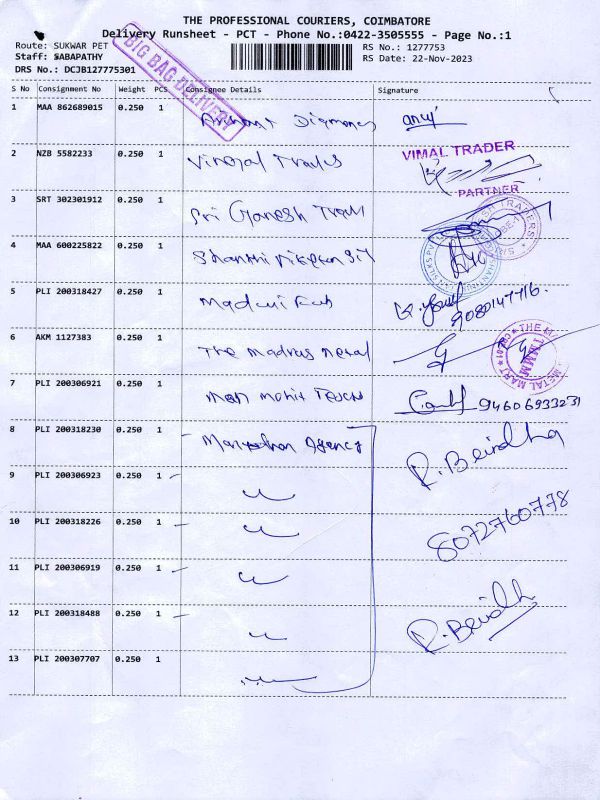 THE PROFESSIONAL COURIERS, COIMBATORE
Delivery Runsheet - PCT - Phone No.:0422-3505555 - Page No.:1
Route: SUKWAR PET
RS No.: 1277753
Staff: SABAPATHY
RS Date: 22-Nov-2023
DRS No.: DCJB127775301
BIG BAG DELIVERY
S No Consignment No Weight PCS Consignee Details Signature
1 MAA 862689015 0.250 1 Arihant Diamonds
2 NZB 5582233 0.250 1 Vimal Traders
VIMAL TRADER
PARTNER
3 SRT 302301912 0.250 1 Sri Ganesh Trad
4 MAA 600225822 0.250 1 Shanthi
5 PLI 200318427 0.250 1 Madhu Fab
9080147716.
6 AKM 1127383 0.250 1 The Madras Metal
THE METAL MART
TMMM
7 PLI 200306921 0.250 1 Man Mohit 9460693323
8 PLI 200318230 0.250 1 Agency R. Beirdha
9 PLI 200306923 0.250 1
10 PLI 200318226 0.250 1 8072760778
11 PLI 200306919 0.250 1
12 PLI 200318488 0.250 1 R. Beirdh
13 PLI 200307707 0.250 1